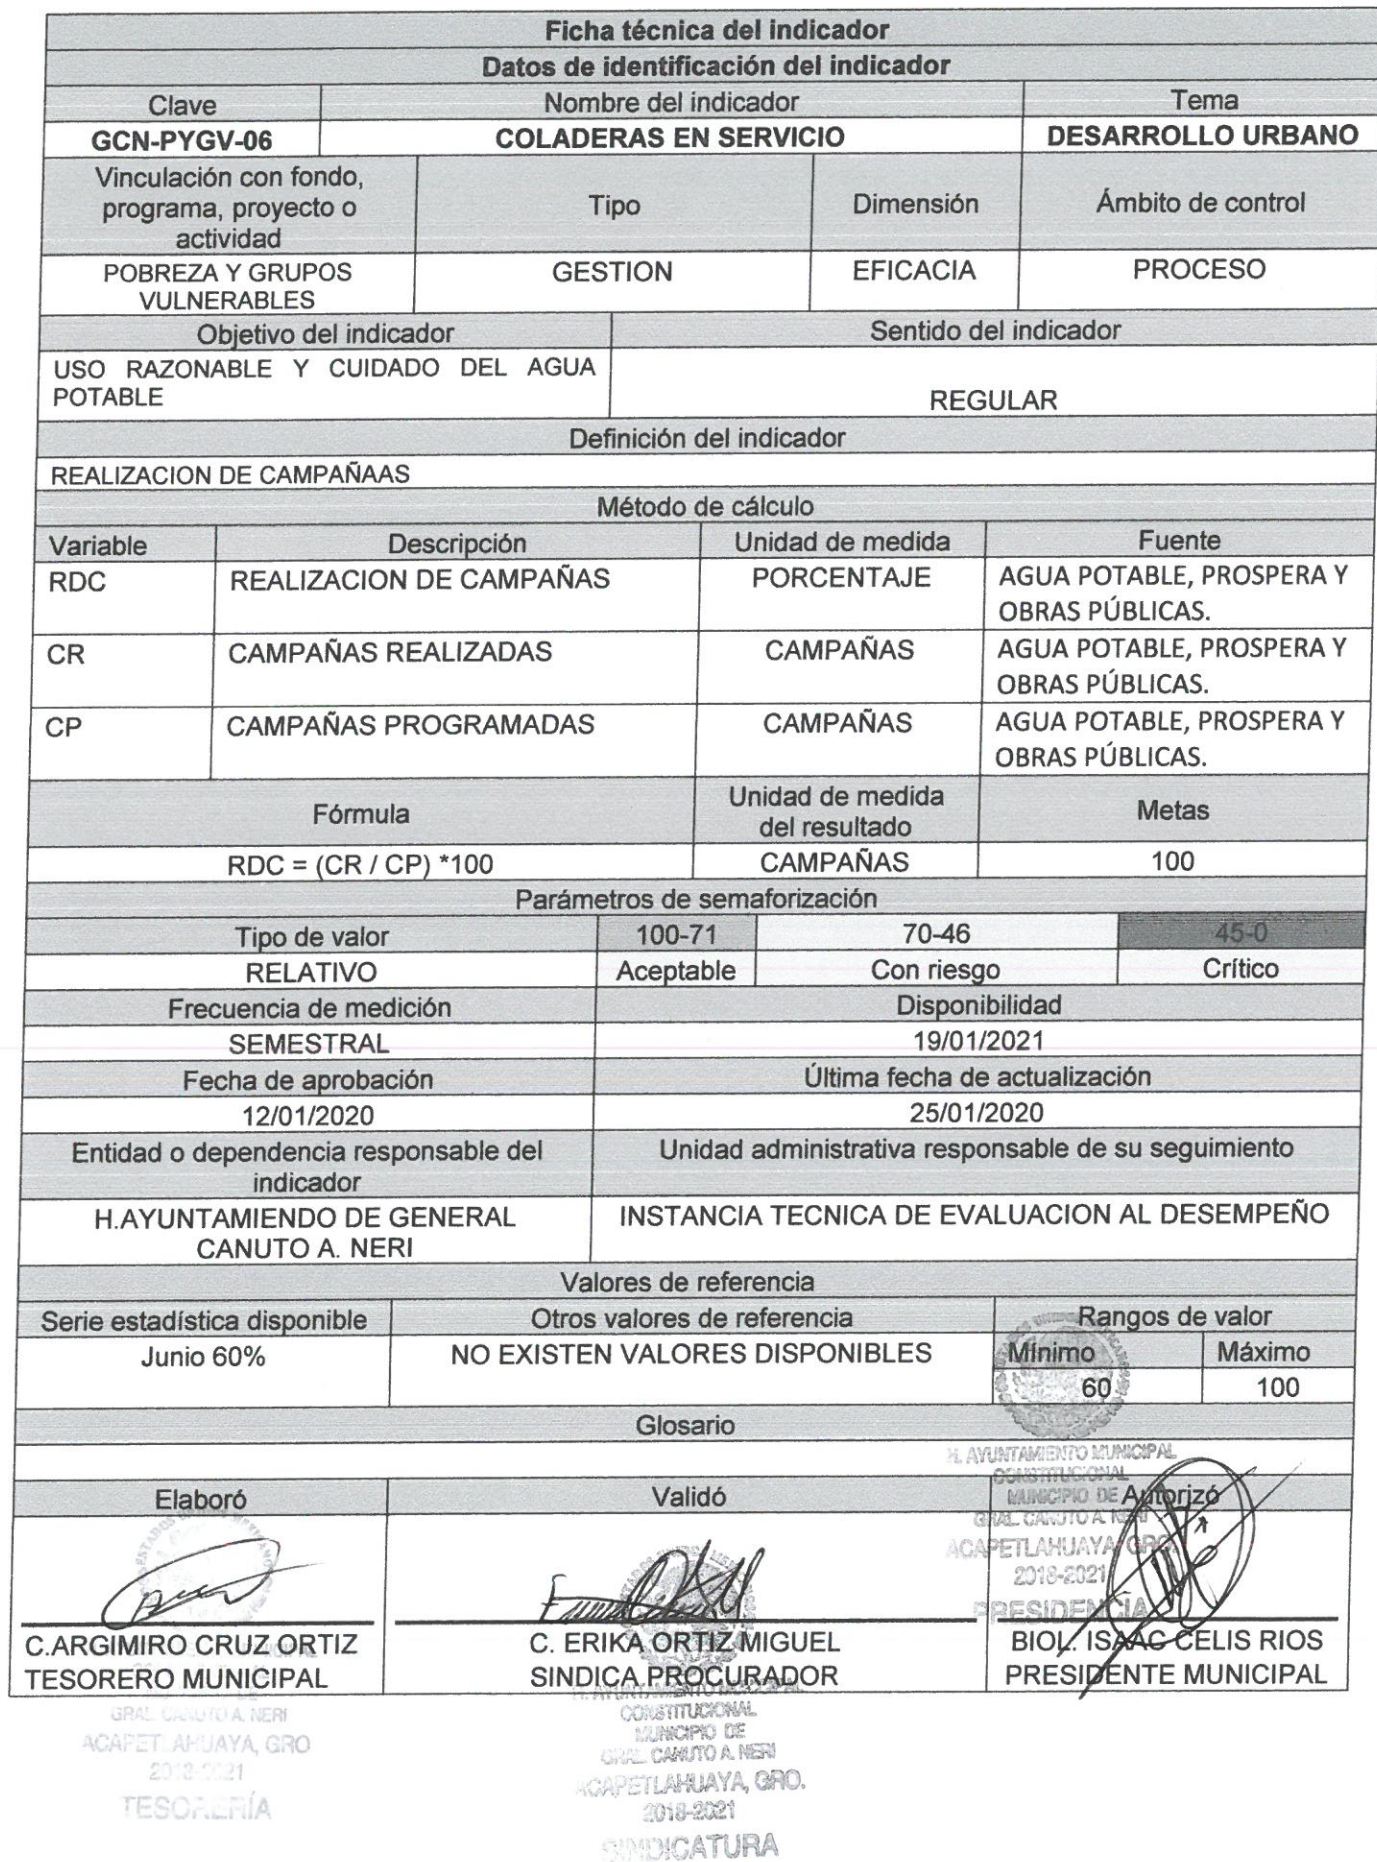 Ficha técnica del indicador
Datos de identificación del indicador
Clave Nombre del indicador Tema
GCN-PYGV-06 COLADERAS EN SERVICIO DESARROLLO URBANO
Vinculación con fondo,
programa, proyecto o
actividad
Tipo Dimensión Ámbito de control
POBREZA Y GRUPOS
VULNERABLES
GESTION EFICACIA PROCESO
Objetivo del indicador Sentido del indicador
USO RAZONABLE Y CUIDADO DEL AGUA
POTABLE
REGULAR
Definición del indicador
REALIZACION DE CAMPAÑAAS
Método de cálculo
Variable Descripción Unidad de medida Fuente
RDC REALIZACION DE CAMPAÑAS PORCENTAJE AGUA POTABLE, PROSPERA Y
OBRAS PÚBLICAS.
CR CAMPAÑAS REALIZADAS CAMPAÑAS AGUA POTABLE, PROSPERA Y
OBRAS PÚBLICAS.
CP CAMPAÑAS PROGRAMADAS CAMPAÑAS AGUA POTABLE, PROSPERA Y
OBRAS PÚBLICAS.
Fórmula
Unidad de medida
del resultado
Metas
RDC = (CR / CP) *100 CAMPAÑAS 100
Parámetros de semaforización
Tipo de valor 100-71 70-46 45-0
RELATIVO Aceptable Con riesgo Crítico
Frecuencia de medición Disponibilidad
SEMESTRAL 19/01/2021
Fecha de aprobación Última fecha de actualización
12/01/2020 25/01/2020
Entidad o dependencia responsable del
indicador
Unidad administrativa responsable de su seguimiento
H.AYUNTAMIENDO DE GENERAL
CANUTO A. NERI
INSTANCIA TECNICA DE EVALUACION AL DESEMPEÑO
Valores de referencia
Serie estadística disponible Otros valores de referencia Rangos de valor
Junio 60% NO EXISTEN VALORES DISPONIBLES Mínimo Máximo
60 100
Glosario
H. AYUNTAMIENTO MUNICIPAL
CONSTITUCIONAL
MUNICIPIO DE
GRAL. CANUTO A. NERI
ACAPETLAHUAYA, GRO.
2018-2021
PRESIDENCIA
Elaboró Validó Autorizó
C.ARGIMIRO CRUZ ORTIZ C. ERIKA ORTIZ MIGUEL BIOL. ISAAC CELIS RIOS
TESORERO MUNICIPAL SINDICA PROCURADOR PRESIDENTE MUNICIPAL
GRAL. CANUTO A. NERI
ACAPETLAHUAYA, GRO
2018-2021
TESORERÍA
H. AYUNTAMIENTO MUNICIPAL
CONSTITUCIONAL
MUNICIPIO DE
GRAL. CANUTO A. NERI
ACAPETLAHUAYA, GRO.
2018-2021
SINDICATURA